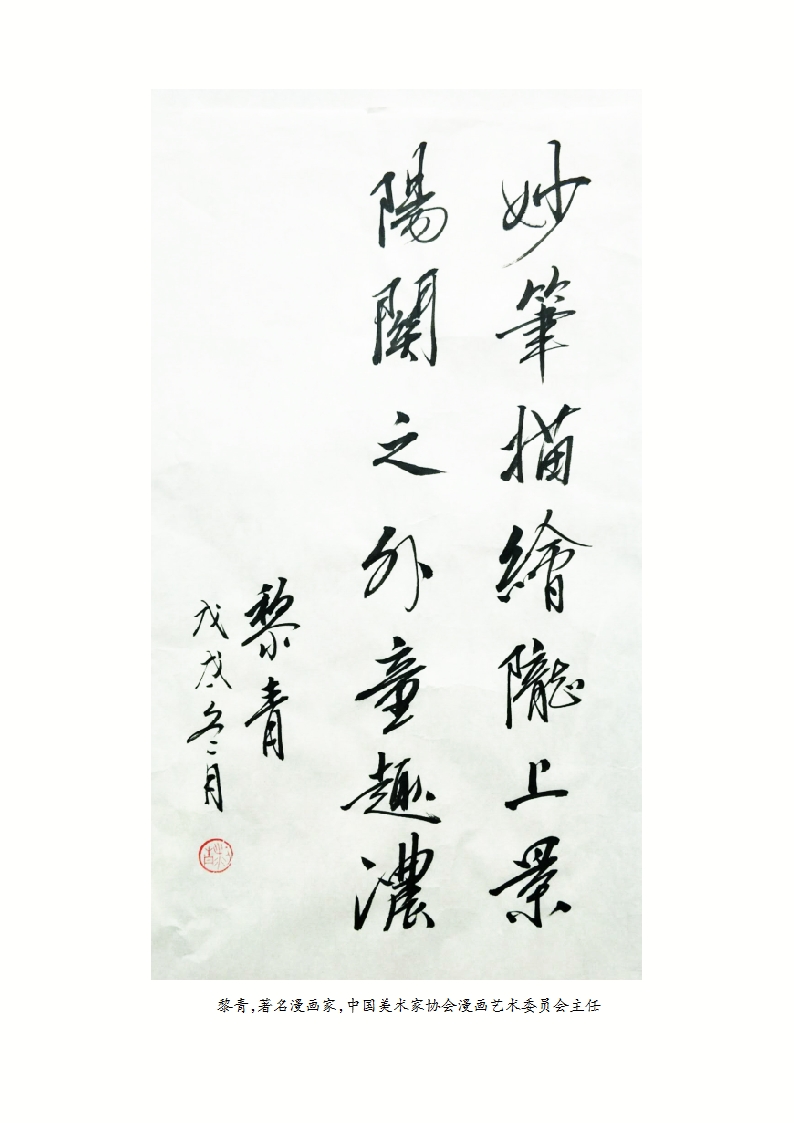 妙筆描繪隴上景
陽関之外童趣濃
黎青
戊戌冬月
黎青,著名漫画家,中国美术家协会漫画艺术委员会主任